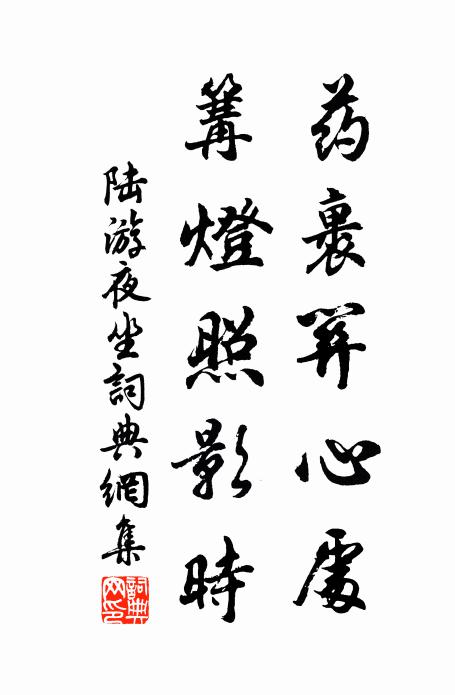 药裹關心處
篝燈照影時
陆游夜坐詞典網集
詞典网印